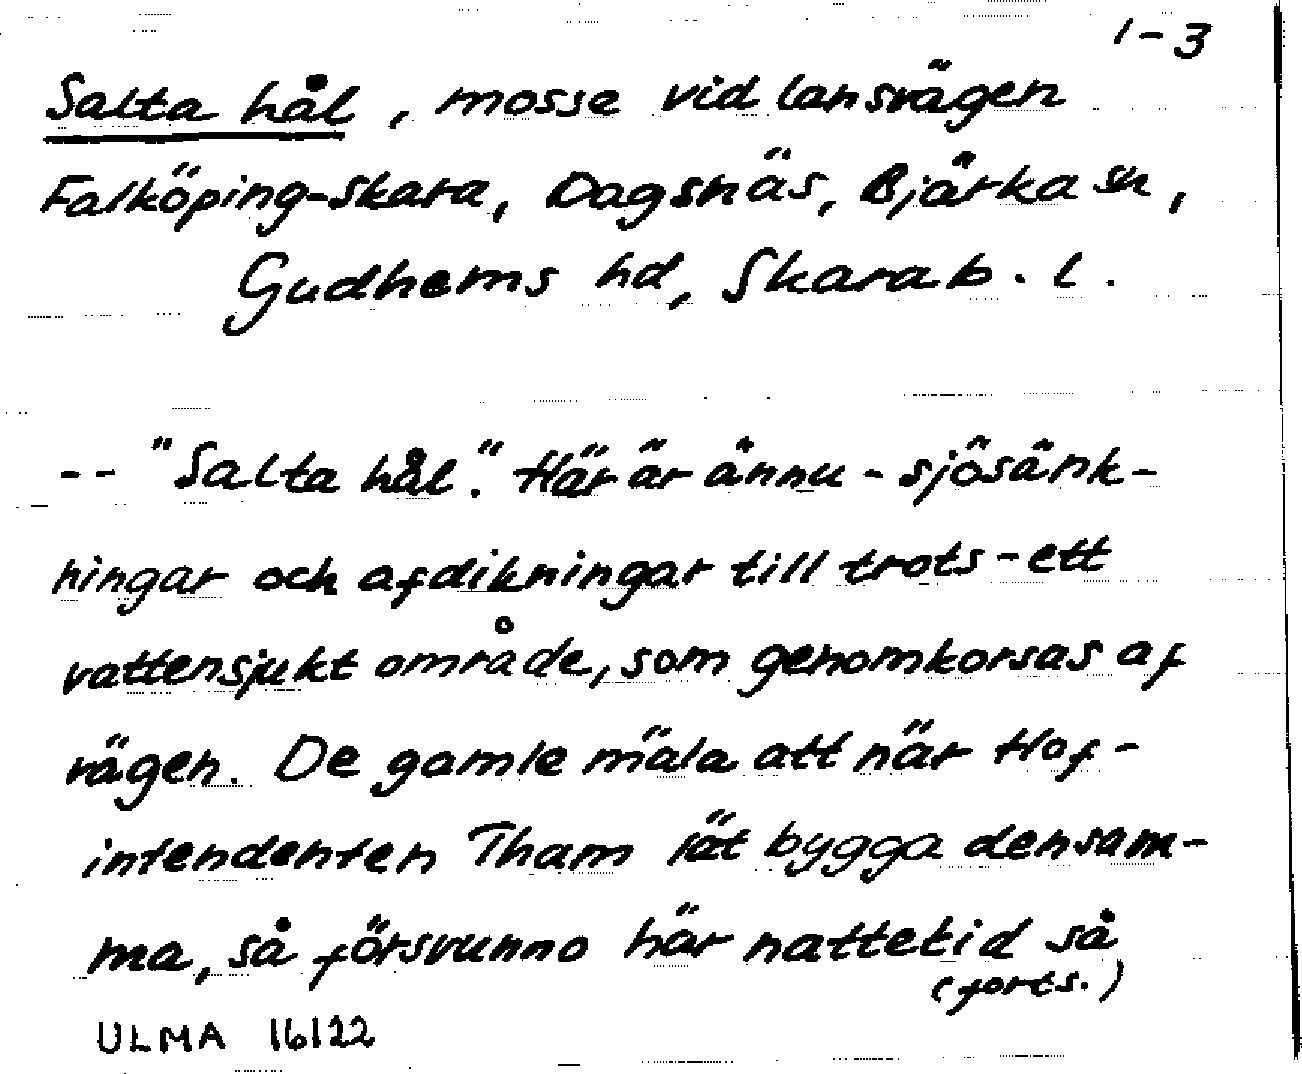 1-3
Salta hål, mosse vid lansvägen
Falköping-Skara, Dagsnäs, Bjärka sn,
Gudhems hd, Skarab. l.
-- "Salta hål." Här är ännu - sjösänk-
ningar och afdikningar till trots - ett
vattensjukt område, som genomkorsas af
vägen. De gamle mäla att när Hof-
intendenten Tham lät bygga densam-
ma, så försvunno här nattetid så
(forts.)
ULMA 16122